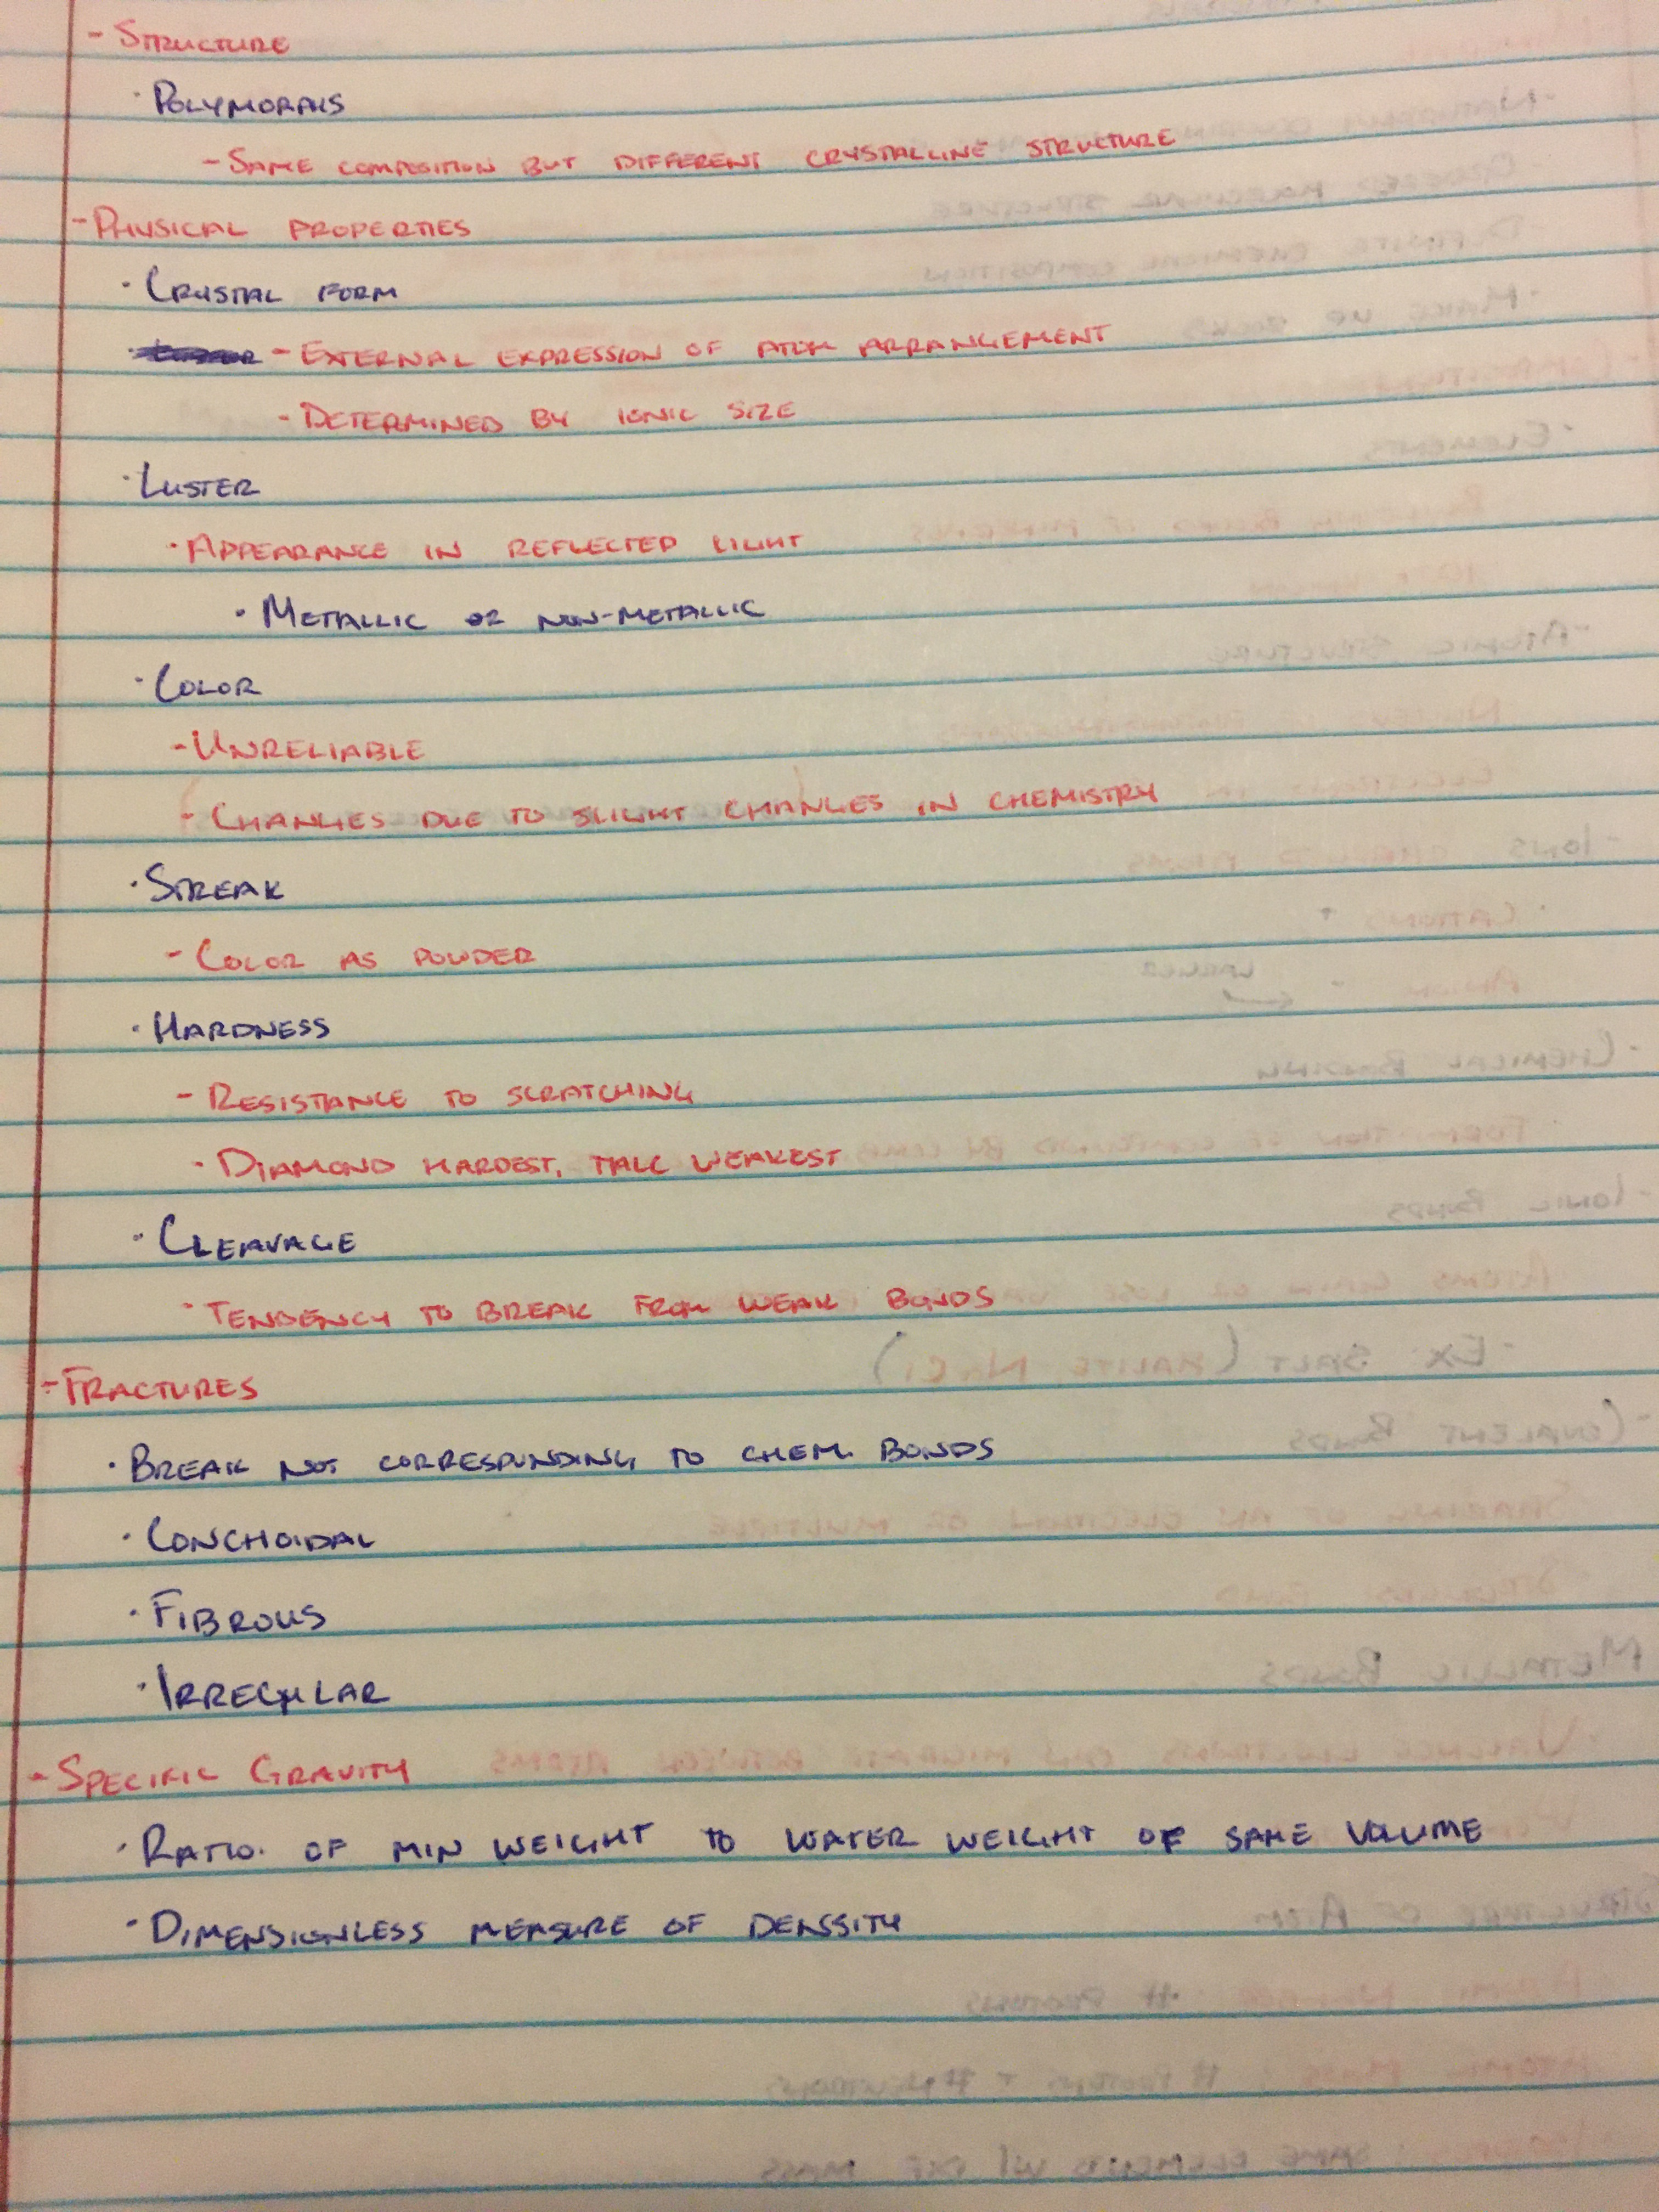 - STRUCTURE
· POLYMORPHS
- SAME COMPOSITION BUT DIFFERENT CRYSTALLINE STRUCTURE
- PHYSICAL PROPERTIES
· CRYSTAL FORM
- EXTERNAL EXPRESSION OF ATOM ARRANGEMENT
- DETERMINED BY IONIC SIZE
· LUSTER
· APPEARANCE IN REFLECTED LIGHT
· METALLIC OR NON-METALLIC
· COLOR
- UNRELIABLE
- CHANGES DUE TO SLIGHT CHANGES IN CHEMISTRY
· STREAK
- COLOR AS POWDER
· HARDNESS
- RESISTANCE TO SCRATCHING
· DIAMOND HARDEST, TALC WEAKEST
· CLEAVAGE
· TENDENCY TO BREAK FROM WEAK BONDS
- FRACTURES
· BREAK NOT CORRESPONDING TO CHEM. BONDS
· CONCHOIDAL
· FIBROUS
· IRREGULAR
- SPECIFIC GRAVITY
· RATIO OF MIN WEIGHT TO WATER WEIGHT OF SAME VOLUME
· DIMENSIONLESS MEASURE OF DENSSITY